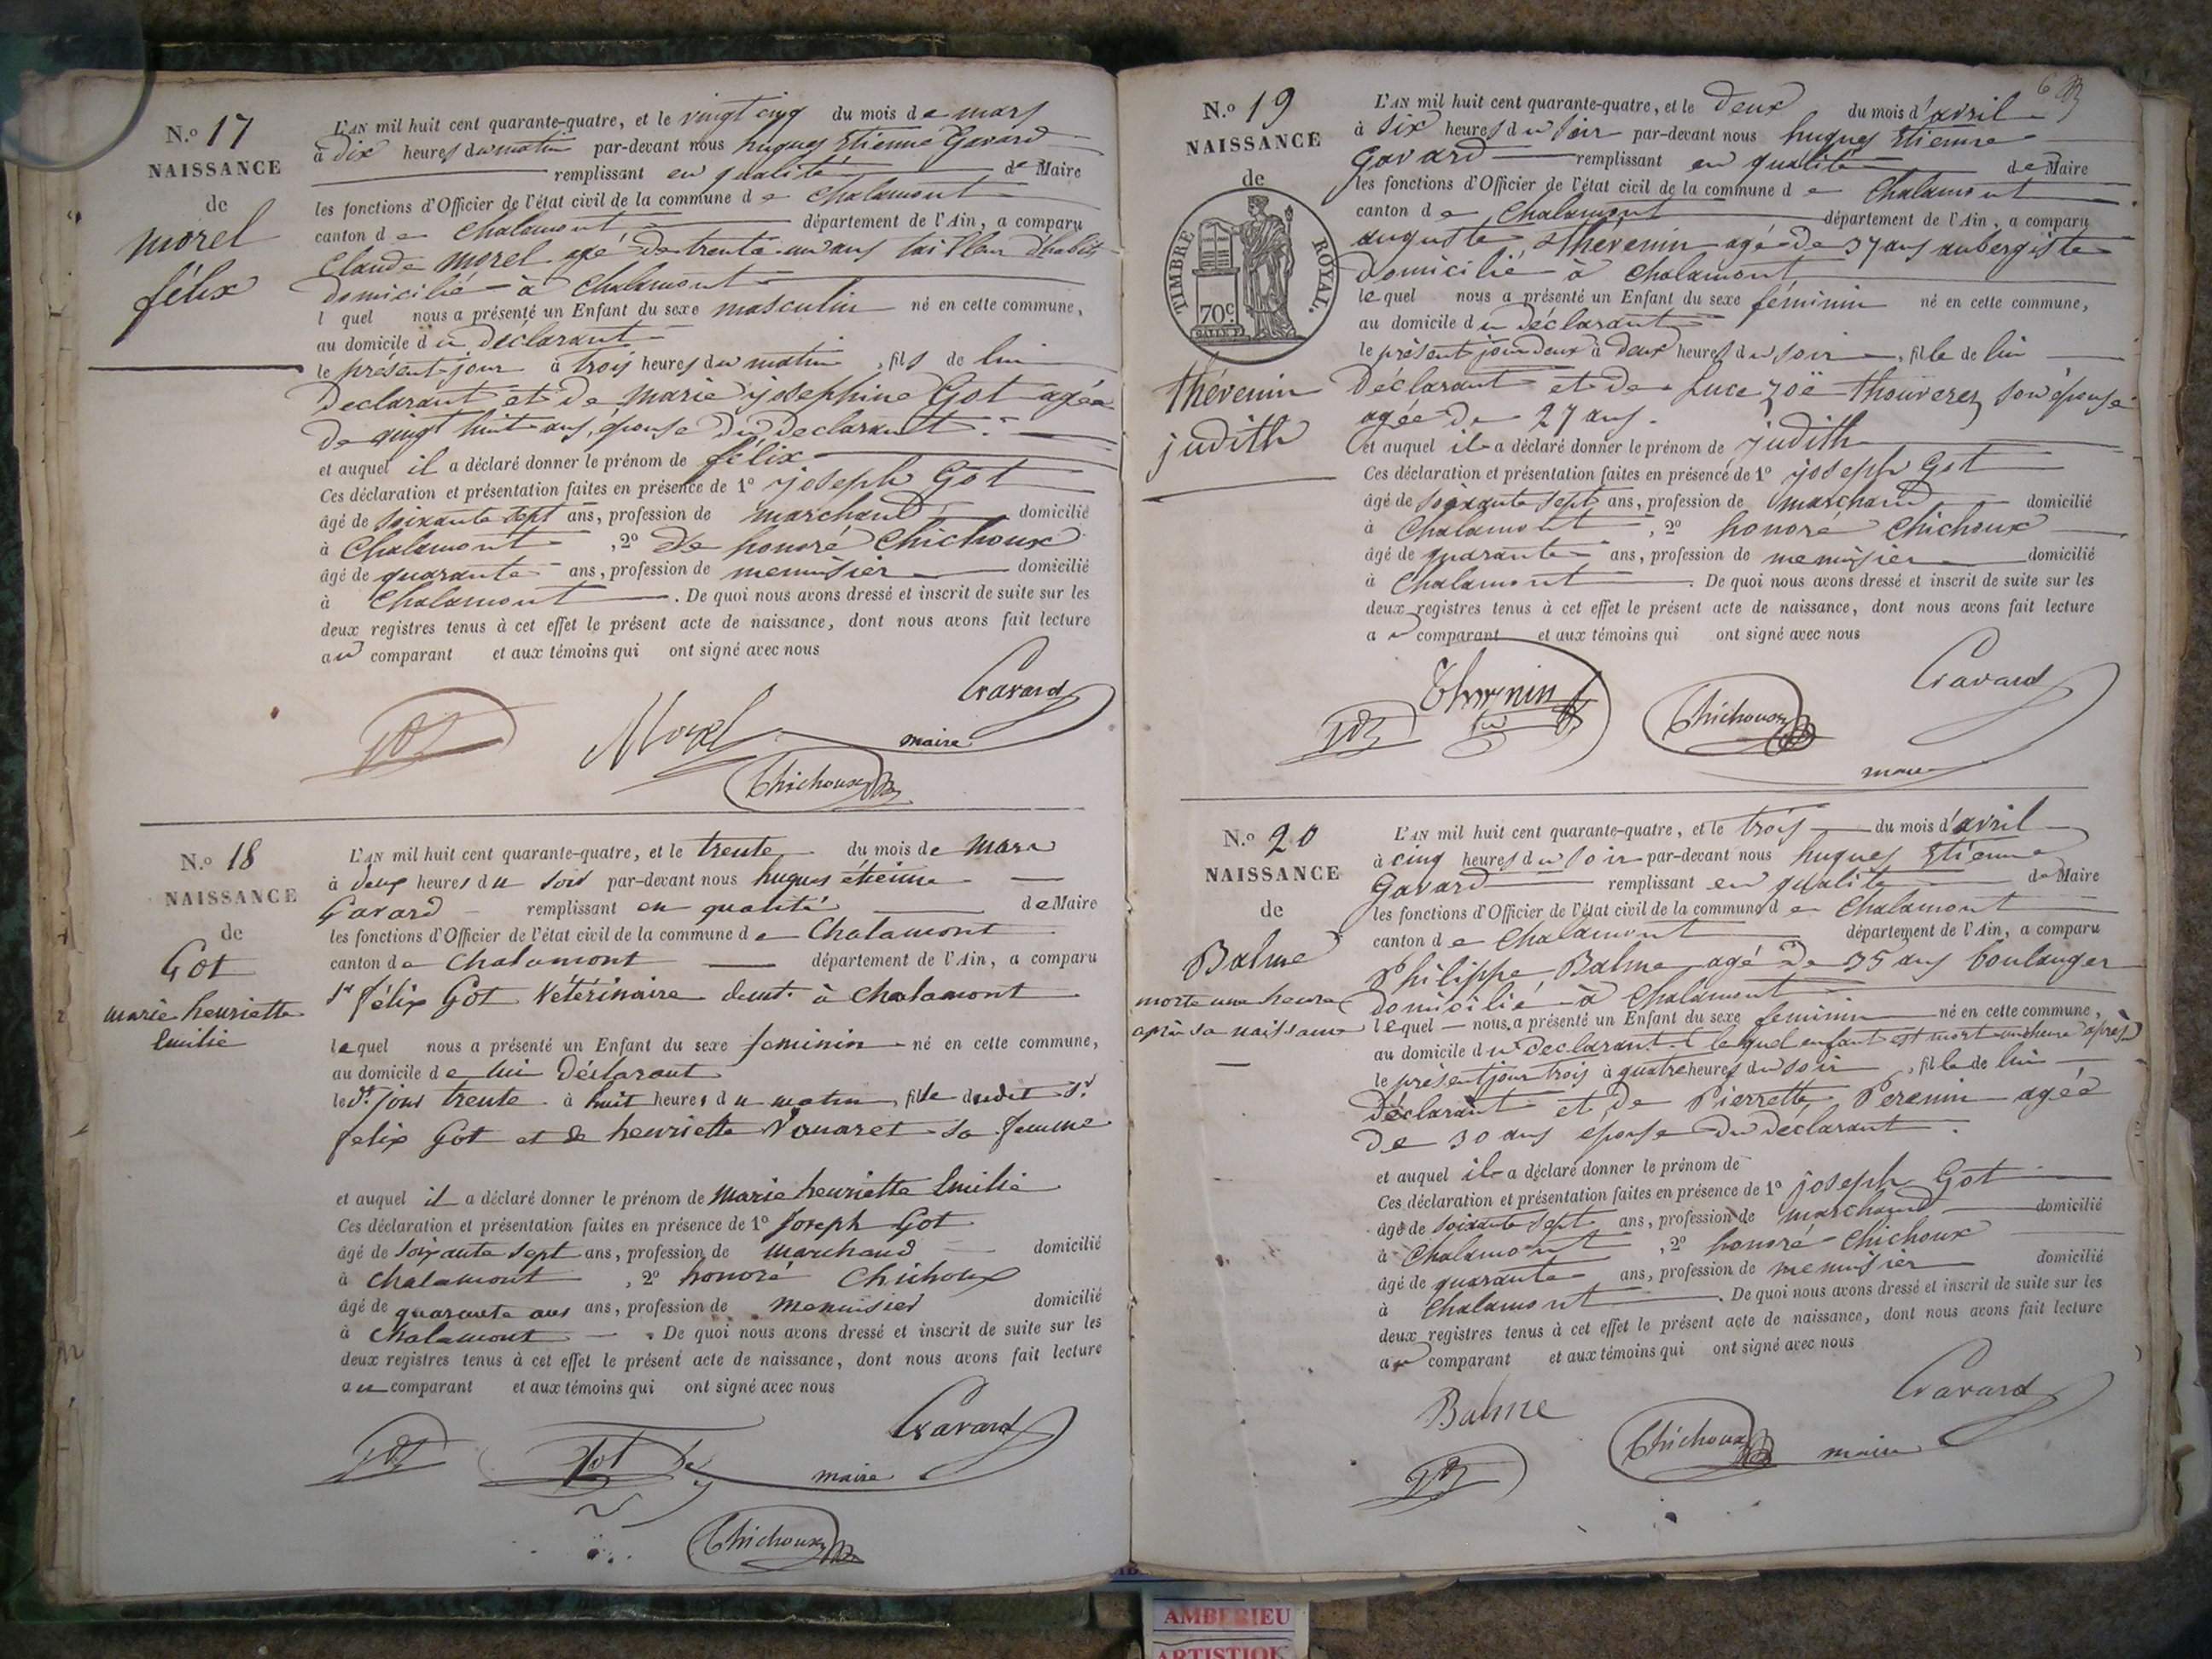 N.º 17
NAISSANCE
de
morel
félix
L'AN mil huit cent quarante-quatre, et le vingt cinq du mois de mars
à dix heures du matin par-devant nous hugues Etienne Gavard
remplissant en qualité de Maire
les fonctions d'Officier de l'état civil de la commune de Chalamont
canton de Chalamont département de l'Ain, a comparu
Claude morel agé de trente un ans tailleur d'habits
domicilié à Chalamont
l quel nous a présenté un Enfant du sexe masculin né en cette commune,
au domicile du déclarant
le présent jour à trois heures du matin, fils de lui
Declarant et de marie josephine Got agée
de vingt huit ans, épouse du Declarant.
et auquel il a déclaré donner le prénom de félix
Ces déclaration et présentation faites en présence de 1º joseph Got
âgé de soixante sept ans, profession de marchand domicilié
à Chalamont, 2º de honoré Chichoux
âgé de quarante ans, profession de menuisier domicilié
à Chalamont. De quoi nous avons dressé et inscrit de suite sur les
deux registres tenus à cet effet le présent acte de naissance, dont nous avons fait lecture
au comparant et aux témoins qui ont signé avec nous
Gavard
Got
Morel
maire
Chichoux
N.º 18
NAISSANCE
de
Got
marie henriette
Emilie
L'AN mil huit cent quarante-quatre, et le trente du mois de mars
à deux heures du soir par-devant nous hugues étienne
Gavard remplissant en qualité de Maire
les fonctions d'Officier de l'état civil de la commune de Chalamont
canton de Chalamont département de l'Ain, a comparu
Sr félix Got Vétérinaire demt. à Chalamont
lequel nous a présenté un Enfant du sexe feminin né en cette commune,
au domicile de lui Déclarant
le dt. jour trente à huit heures du matin, fille dudit Sr.
felix Got et de henriette Vouaret sa femme
et auquel il a déclaré donner le prénom de Marie henriette Emilie
Ces déclaration et présentation faites en présence de 1º Joseph Got
âgé de soixante sept ans, profession de marchand domicilié
à Chalamont, 2º honoré Chichoux
âgé de quarante ans ans, profession de menuisier domicilié
à Chalamont. De quoi nous avons dressé et inscrit de suite sur les
deux registres tenus à cet effet le présent acte de naissance, dont nous avons fait lecture
au comparant et aux témoins qui ont signé avec nous
Gavard
Got
Got
maire
Chichoux
N.º 19
NAISSANCE
de
TIMBRE ROYAL.
70c
thévenin
judith
L'AN mil huit cent quarante-quatre, et le deux du mois d'avril
à six heures du soir par-devant nous hugues Etienne
Gavard remplissant en qualité de Maire
les fonctions d'Officier de l'état civil de la commune de Chalamont
canton de Chalamont département de l'Ain, a comparu
auguste thévenin agé de 37 ans aubergiste
domicilié à Chalamont
lequel nous a présenté un Enfant du sexe féminin né en cette commune,
au domicile du déclarant
le présent jour deux à deux heures du soir, fille de lui
Déclarant et de Luce zoë thouverez son épouse
agée de 27 ans.
et auquel il a déclaré donner le prénom de judith
Ces déclaration et présentation faites en présence de 1º joseph Got
âgé de soixante sept ans, profession de marchand domicilié
à Chalamont, 2º honoré Chichoux
âgé de quarante ans, profession de menuisier domicilié
à Chalamont. De quoi nous avons dressé et inscrit de suite sur les
deux registres tenus à cet effet le présent acte de naissance, dont nous avons fait lecture
au comparant et aux témoins qui ont signé avec nous
Gavard
Thevenin
Got
Chichoux
maire
N.º 20
NAISSANCE
de
Balme
morte une heure
après sa naissance
L'AN mil huit cent quarante-quatre, et le trois du mois d'avril
à cinq heures du soir par-devant nous hugues Etienne
Gavard remplissant en qualité de Maire
les fonctions d'Officier de l'état civil de la commune de Chalamont
canton de Chalamont département de l'Ain, a comparu
Philippe Balme agé de 35 ans boulanger
domicilié à Chalamont
lequel nous a présenté un Enfant du sexe feminin né en cette commune,
au domicile du declarant lequel enfant est mort une heure après
le présent jour trois à quatre heures du soir, fille de lui
Déclarant et de Pierrette Perenin agée
de 30 ans epouse du déclarant.
et auquel il a déclaré donner le prénom de
Ces déclaration et présentation faites en présence de 1º joseph Got
âgé de soixante sept ans, profession de marchand domicilié
à Chalamont, 2º honoré Chichoux
âgé de quarante ans, profession de menuisier domicilié
à Chalamont. De quoi nous avons dressé et inscrit de suite sur les
deux registres tenus à cet effet le présent acte de naissance, dont nous avons fait lecture
au comparant et aux témoins qui ont signé avec nous
Gavard
Balme
Chichoux
maire
Got
AMBERIEU
ARTISTIQ